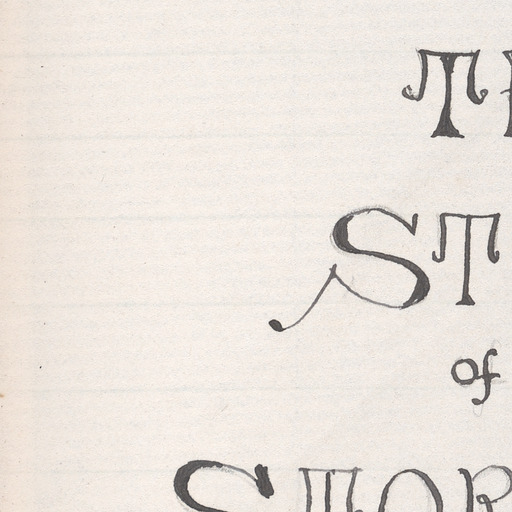 T
ST
of
STOR